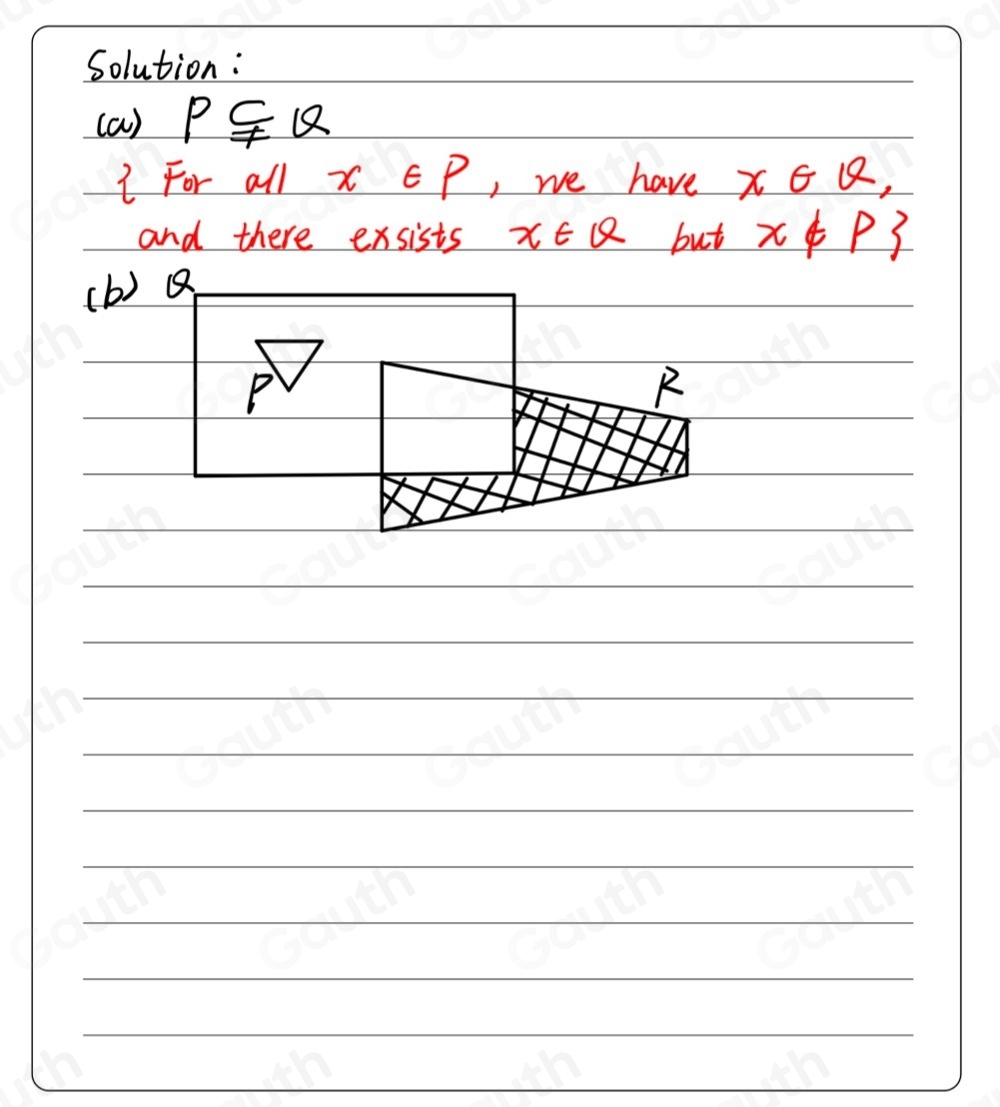 Solution:
(a) P ⊊ Q
{ For all x ∈ P, we have x ∈ Q,
and there exsists x ∈ Q but x ∉ P}
(b) Q
P
R
Gauth